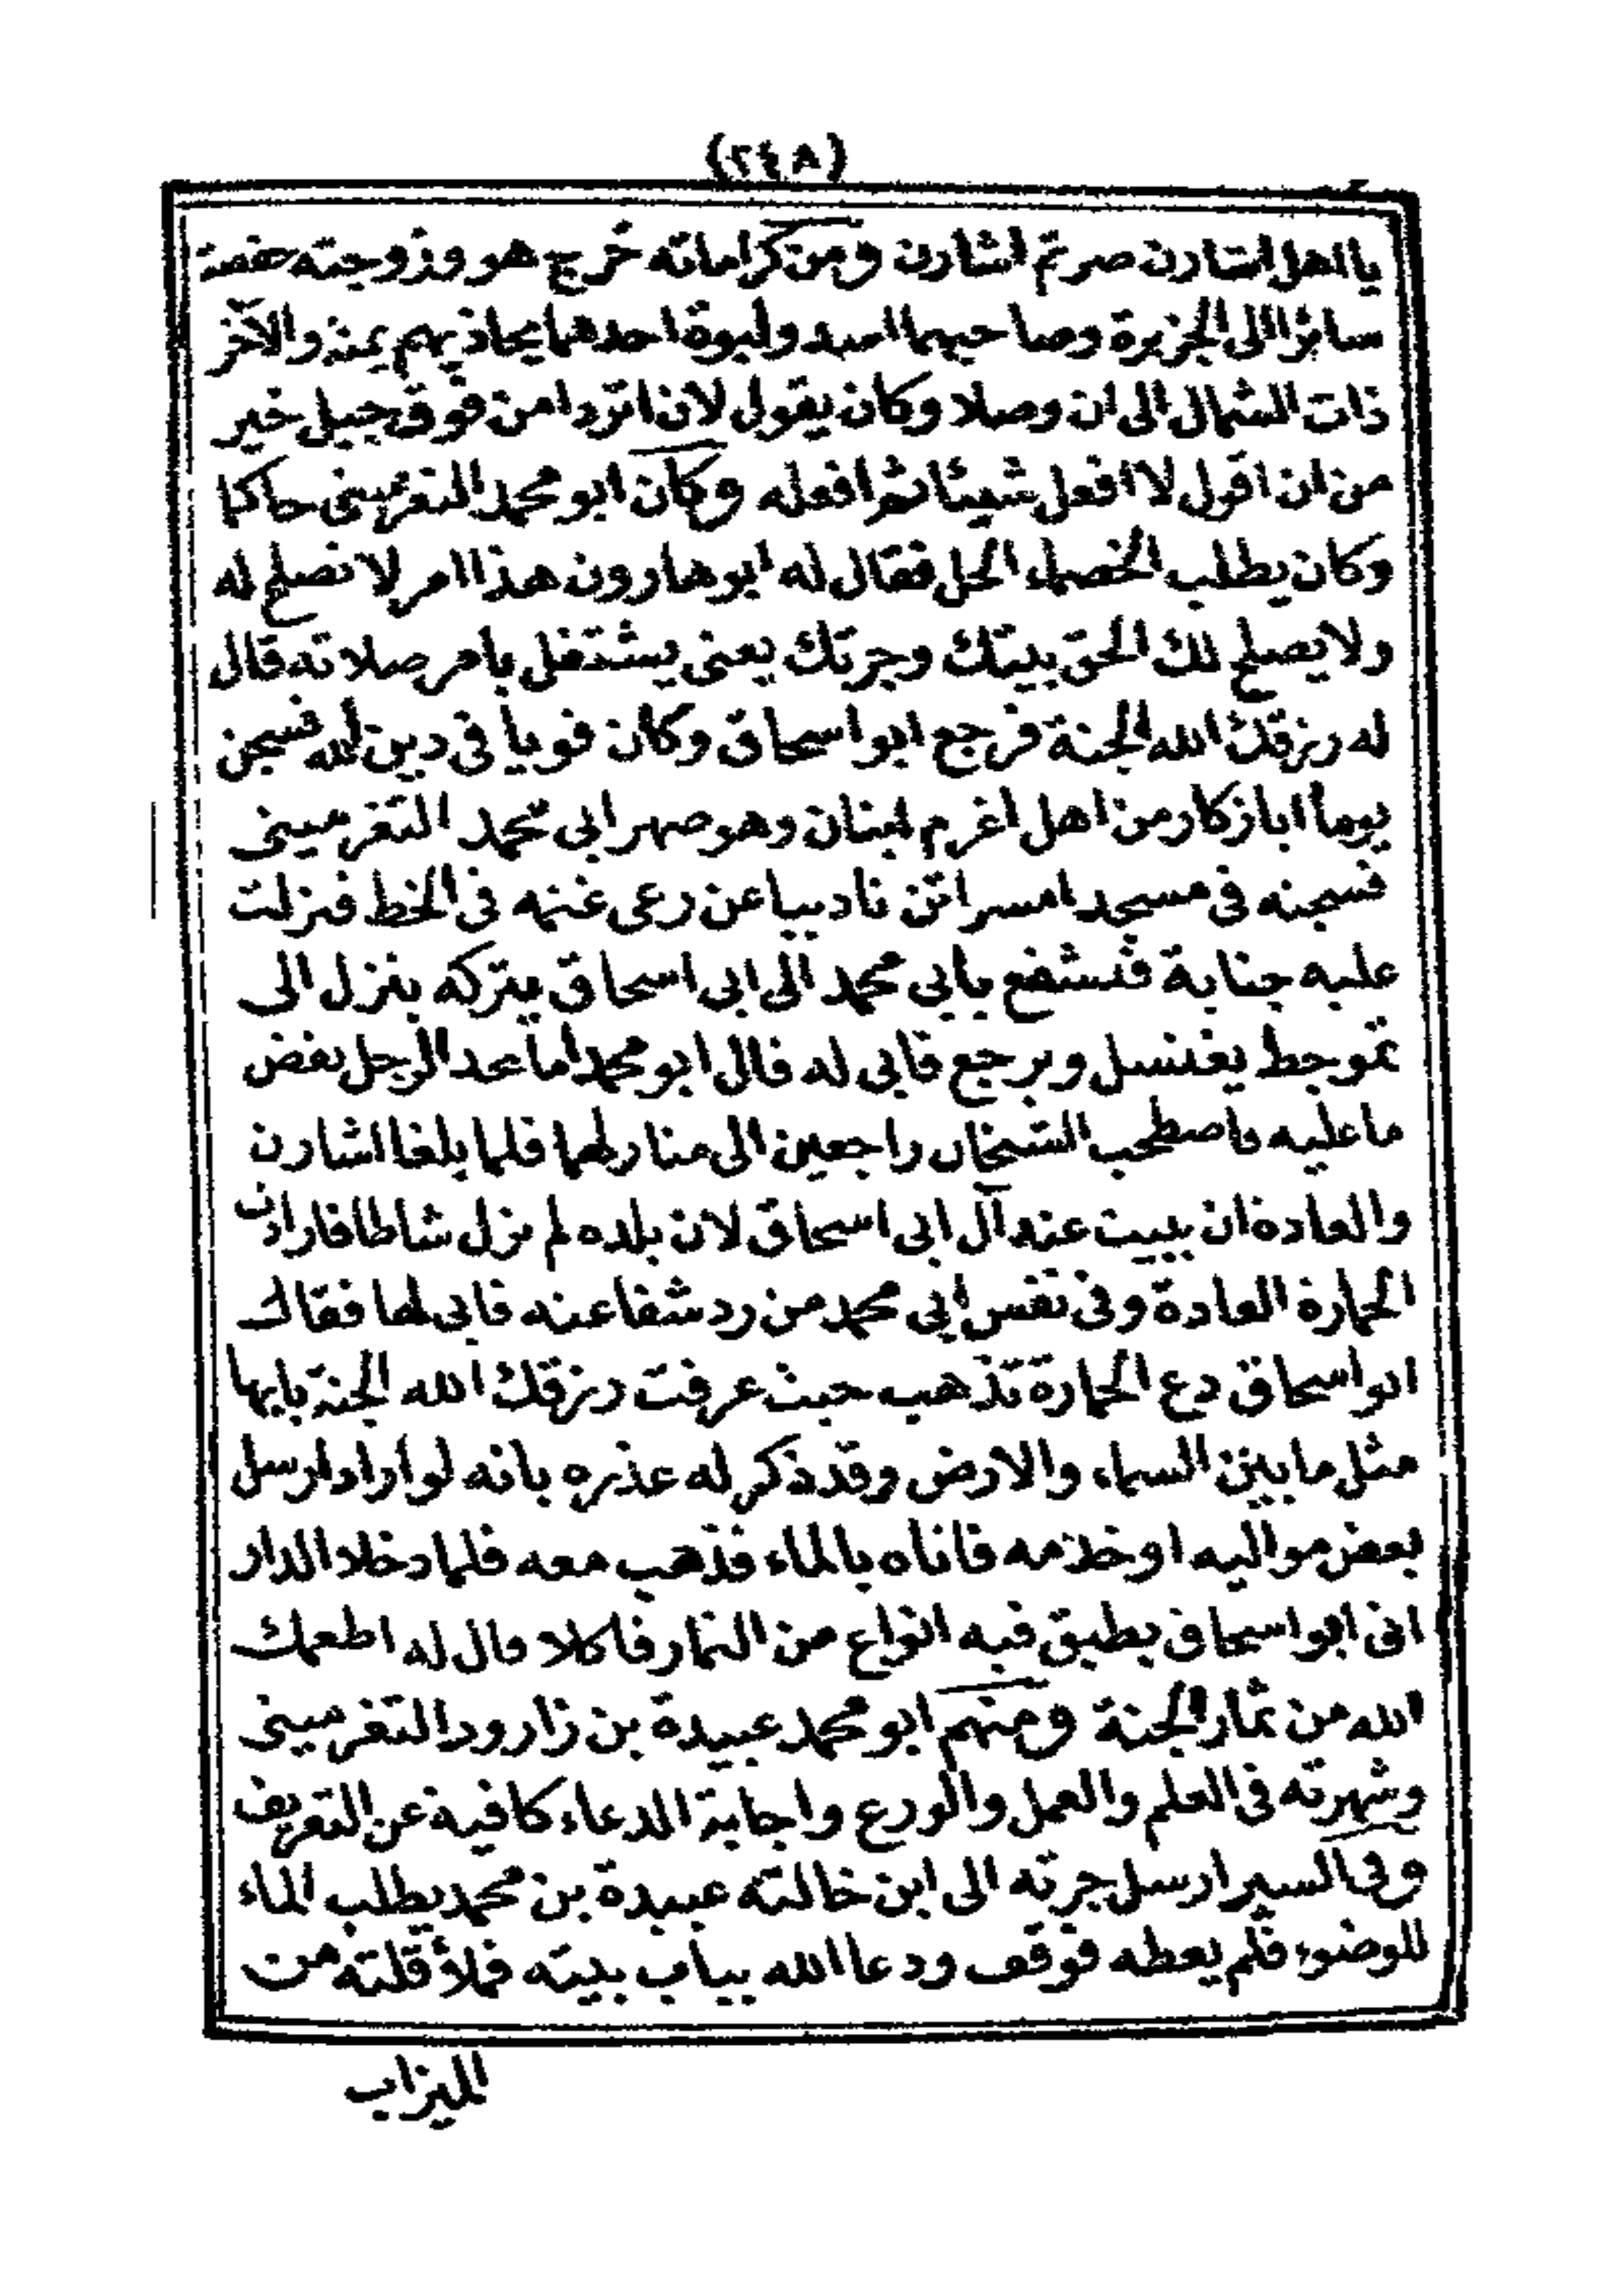 (٢٤٨)
يا اهل اشارن صرتم اشارن ومن كراماته خرج هو وزوجته حفصة
سائرا الى الجزيرة وصاحبهما اسد ولبوة احدهما يحاذيهم يمنة والآخر
ذات الشمال الى ان وصلا وكان يقول لان اتردا من فوق جبل خير
من ان اقول لا افعل شيئا ثم افعله وكان ابو محمد التغرميني حاكما
وكان يطلب الخصماء الحل فقال له ابو هارون هذا امر لا تصلح له
ولا يصلح لك الحق بيتك وجرتك يعني يشتغل بامر صلاته قال
له رزقك الله الجنة فرجع ابو اسحاق وكان قويا في دين الله فسجن
يوما ابا زكار من اهل اغرم لمنان وهو صهر ابي محمد التغرميني
فسجنه في مسجد امسراتن تاديبا عن رعي غنمه في الخط فنزلت
عليه جنابة فتشفع بأبي محمد الى ابي اسحاق يتركه ينزل الى
تموجط يغتسل ويرجع فابى له قال ابو محمد اما عند الرجل بعض
ما عليه فاصطحب الشيخان راجعين الى منازلهما فلما بلغا اشارن
والعادة ان يبيت عند آل ابي اسحاق لان بلده لم نزل شاطا فارادت
الحمارة العادة وفي نفس ابي محمد من رد شفاعته فابى لها فقال
ابو اسحاق دع الحمارة تذهب حيث عرفت رزقك الله الجنة بابها
مثل ما بين السماء والارض وقد ذكر له عذره بانه لو اراد ارسل
بعض مواليه او خدمه فاتاه بالماء فذهب معه فلما دخلا الدار
اتى ابو اسحاق بطبق فيه انواع من الثمار فاكلا قال له اطعمك
الله من ثمار الجنة ومنهم ابو محمد عبيدة بن زارود التغرميني
وشهرته في العلم والعمل والورع واجابة الدعاء كافية عن التعريف
وفي السير ارسل جرته الى ابن خالته عبيدة بن محمد يطلب الماء
للوضوء فلم يعطه فوقف ودعا الله بباب بيته فملأ قلته من
الميزاب